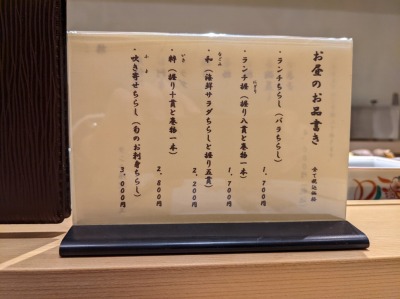 お昼のお品書き
全て税込価格
・ランチちらし（バラちらし）
1,700円
・ランチ握（握り八貫と巻物一本）
にぎり
1,700円
・和（海鮮サラダちらしと握り五貫）
なごみ
2,200円
・粋（握り十貫と巻物一本）
いき
2,800円
・吹き寄せちらし（旬のお刺身ちらし）
ふ　よ
3,000円